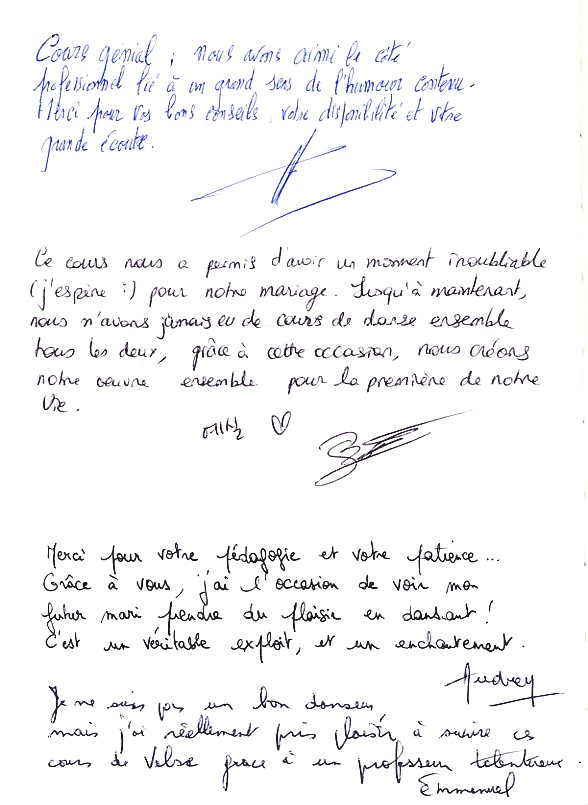 Cours génial ; nous avons aimé le côté
professionnel lié à un grand sens de l'humour contenu.
Merci pour vos bons conseils, votre disponibilité et votre
grande écoute.
Ce cours nous a permis d'avoir un moment inoubliable
(j'espère :) pour notre mariage. Jusqu'à maintenant,
nous n'avons jamais eu de cours de danse ensemble
tous les deux, grâce à cette occasion, nous créons
notre oeuvre ensemble pour la première de notre
vie.
Merci pour votre pédagogie et votre patience...
Grâce à vous, j'ai l'occasion de voir mon
futur mari prendre du plaisir en dansant !
C'est un véritable exploit, et un enchantement.
Audrey
Je ne suis pas un bon danseur,
mais j'ai réellement pris plaisir à suivre ces
cours de Valse grace à un professeur talentueux.
Emmanuel